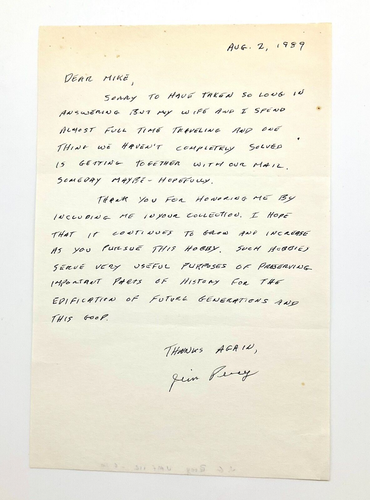 AUG. 2, 1989
DEAR MIKE,
SORRY TO HAVE TAKEN SO LONG IN
ANSWERING BUT MY WIFE AND I SPEND
ALMOST FULL TIME TRAVELING AND ONE
THING WE HAVEN'T COMPLETELY SOLVED
IS GETTING TOGETHER WITH OUR MAIL.
SOMEDAY MAYBE - HOPEFULLY.
THANK YOU FOR HONORING ME BY
INCLUDING ME IN YOUR COLLECTION. I HOPE
THAT IT CONTINUES TO GROW AND INCREASE
AS YOU PURSUE THIS HOBBY. SUCH HOBBIES
SERVE VERY USEFUL PURPOSES OF PRESERVING
IMPORTANT PARTS OF HISTORY FOR THE
EDIFICATION OF FUTURE GENERATIONS AND
THIS GOOD.
THANKS AGAIN,
Jim